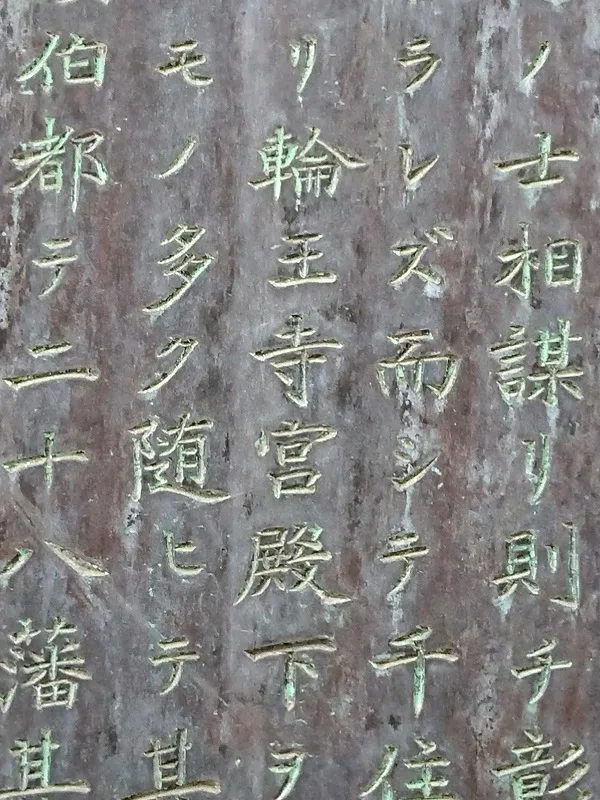 ノ士相謀リ則チ彰
ラレズ而シテ千住
リ輪王寺宮殿下ヲ
モノ多ク随ヒテ其
伯都テ二十八藩其